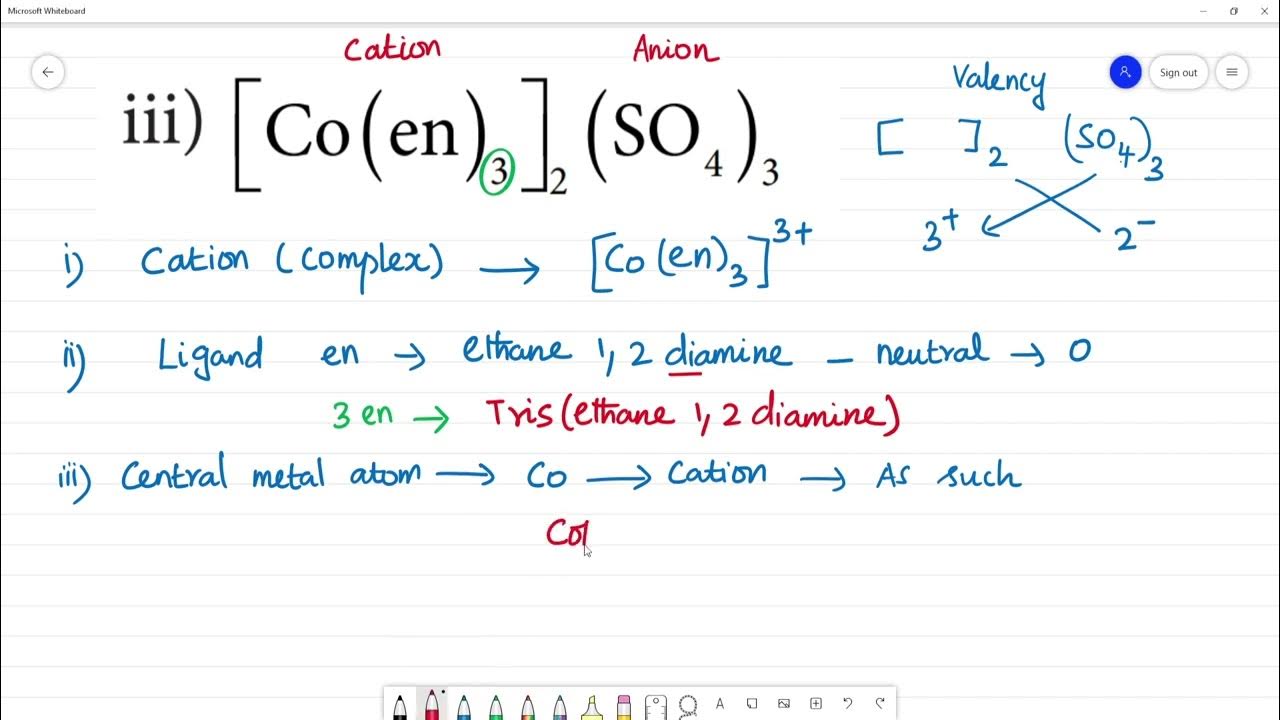 Microsoft Whiteboard
Cation Anion
Valency
Sign out
iii) [Co(en)₃]₂(SO₄)₃
[ ]₂ (SO₄)₃
3⁺ 2⁻
i) Cation (Complex) → [Co(en)₃]³⁺
ii) Ligand en → ethane 1,2 diamine – neutral → 0
3 en → Tris(ethane 1,2 diamine)
iii) Central metal atom → Co → Cation → As such
Col
A